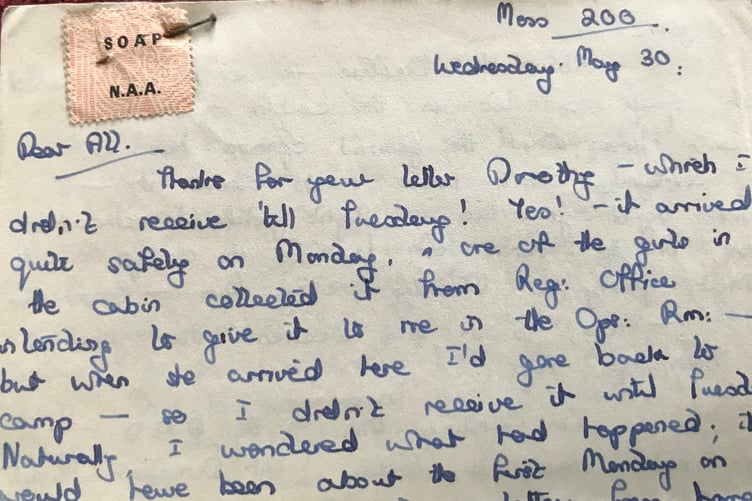 SOAP
N.A.A.
Mess 200.
Wednesday. May 30.
Dear All.
Thanks for your letter Dorothy – which I
didn't receive 'till Tuesday! Yes! – it arrived
quite safely on Monday. one of the girls in
the cabin collected it from Reg: Office
intending to give it to me in the Ops: Rm: —
but when she arrived here I'd gone back to
camp — so I didn't receive it until Tuesd
Naturally, I wondered what had happened; it
would have been about the first Monday on